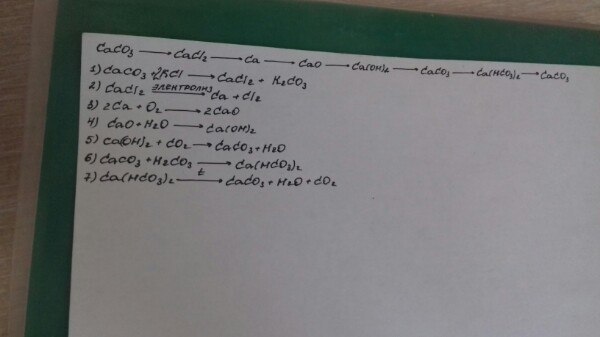 CaCO3 → CaCl2 → Ca → CaO → Ca(OH)2 → CaCO3 → Ca(HCO3)2 → CaCO3
1) CaCO3 + 2KCl → CaCl2 + K2CO3
2) CaCl2 электролиз → Ca + Cl2
3) 2Ca + O2 → 2CaO
4) CaO + H2O → Ca(OH)2
5) Ca(OH)2 + CO2 → CaCO3 + H2O
6) CaCO3 + H2CO3 → Ca(HCO3)2
7) Ca(HCO3)2 t → CaCO3 + H2O + CO2